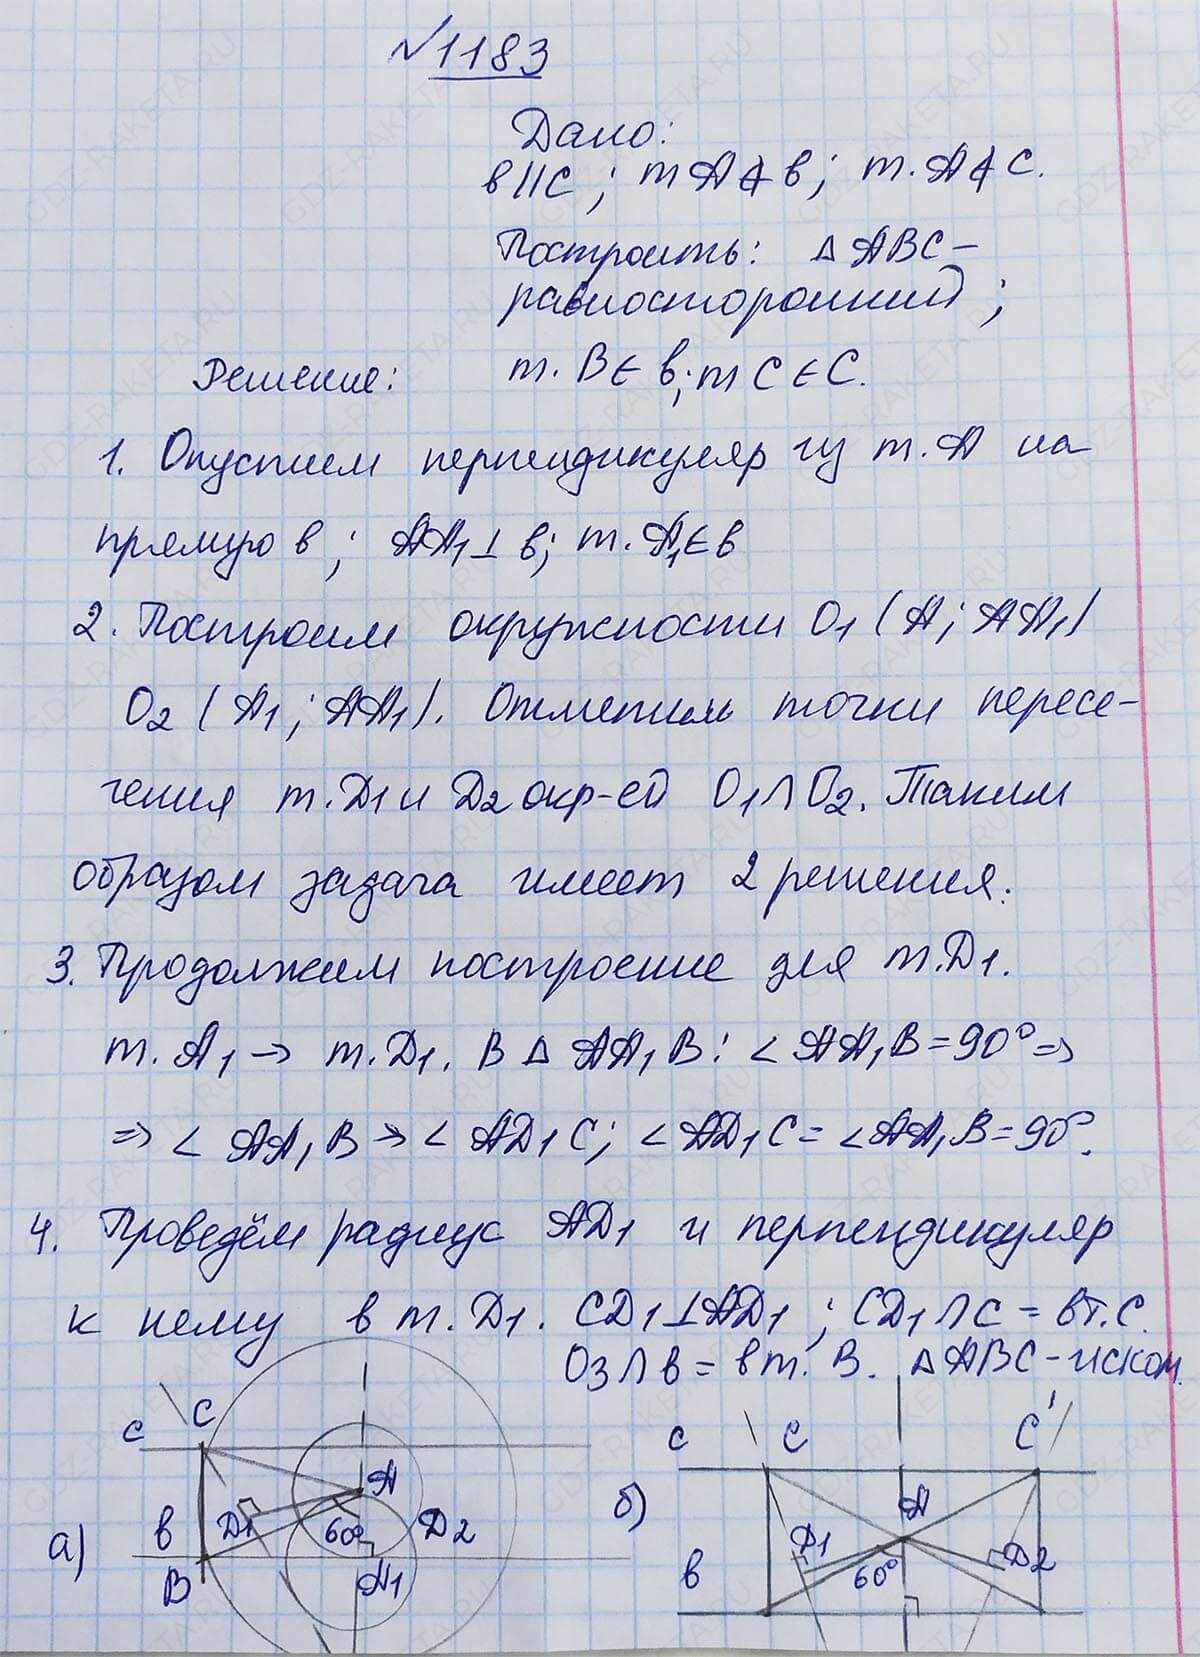 №1183
Дано:
в||С; т А∉в; т. А∉С.
Построить: △ АВС –
равносторонний;
Решение: т. В∈ в; т С∈С.
1. Опустим перпендикуляр из т. А на
прямую в; АА₁⊥ в; т. А₁∈в
2. Построим окружности О₁ (А; АА₁)
О₂ (А₁; АА₁). Отметим точки пересе-
чения т. D₁ и D₂ окр-ей О₁∩О₂. Таким
образом задача имеет 2 решения.
3. Продолжим построение для т. D₁.
т. А₁ → т. D₁. В △ АА₁В: ∠ АА₁В = 90° ⇒
⇒ ∠ АА₁В → ∠ АD₁С; ∠ АD₁С = ∠АА₁В = 90°.
4. Проведём радиус АD₁ и перпендикуляр
к нему в т. D₁. СD₁⊥АD₁; СD₁∩С = вт. С.
О₃∩в = вт. В. △АВС-иском.
с С А D₁ 60° D₂ в В А₁ а)
с С С' А D₁ D₂ 60° в б)
GDZ-RAKETA.RU